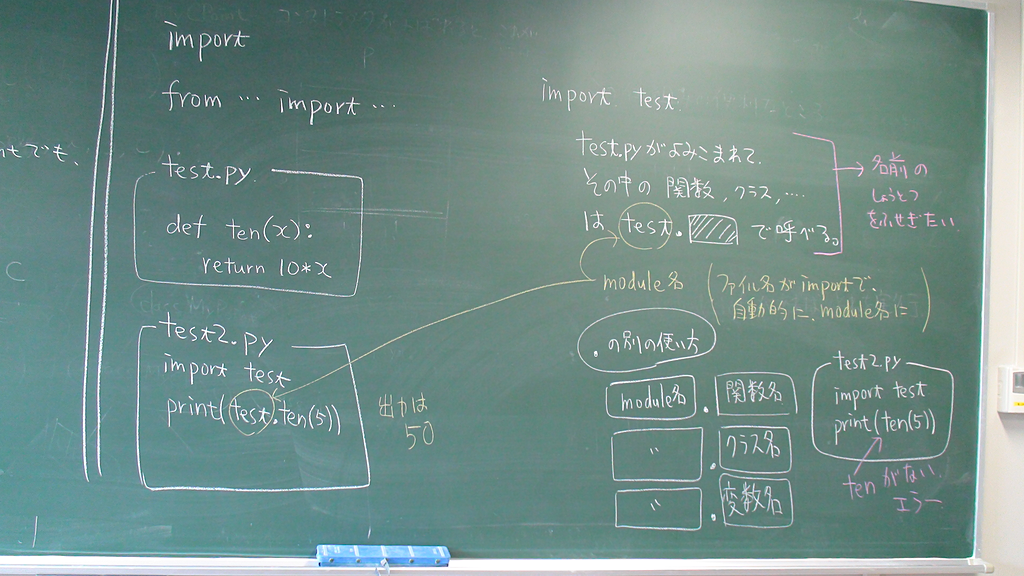 でも、
import
from … import …
test.py
def ten(x):
return 10*x
test2.py
import test
print(test.ten(5))
出力は
50
import test
test.pyがよみこまれて、
その中の 関数, クラス, ‥‥
は test. で呼べる。
名前の
しょうとつ
をふせぎたい
module名
(ファイル名がimportで、
自動的に、module名に)
. の別の使い方
module名 . 関数名
〃 . クラス名
〃 . 変数名
test2.py
import test
print(ten(5))
tenがない
エラー